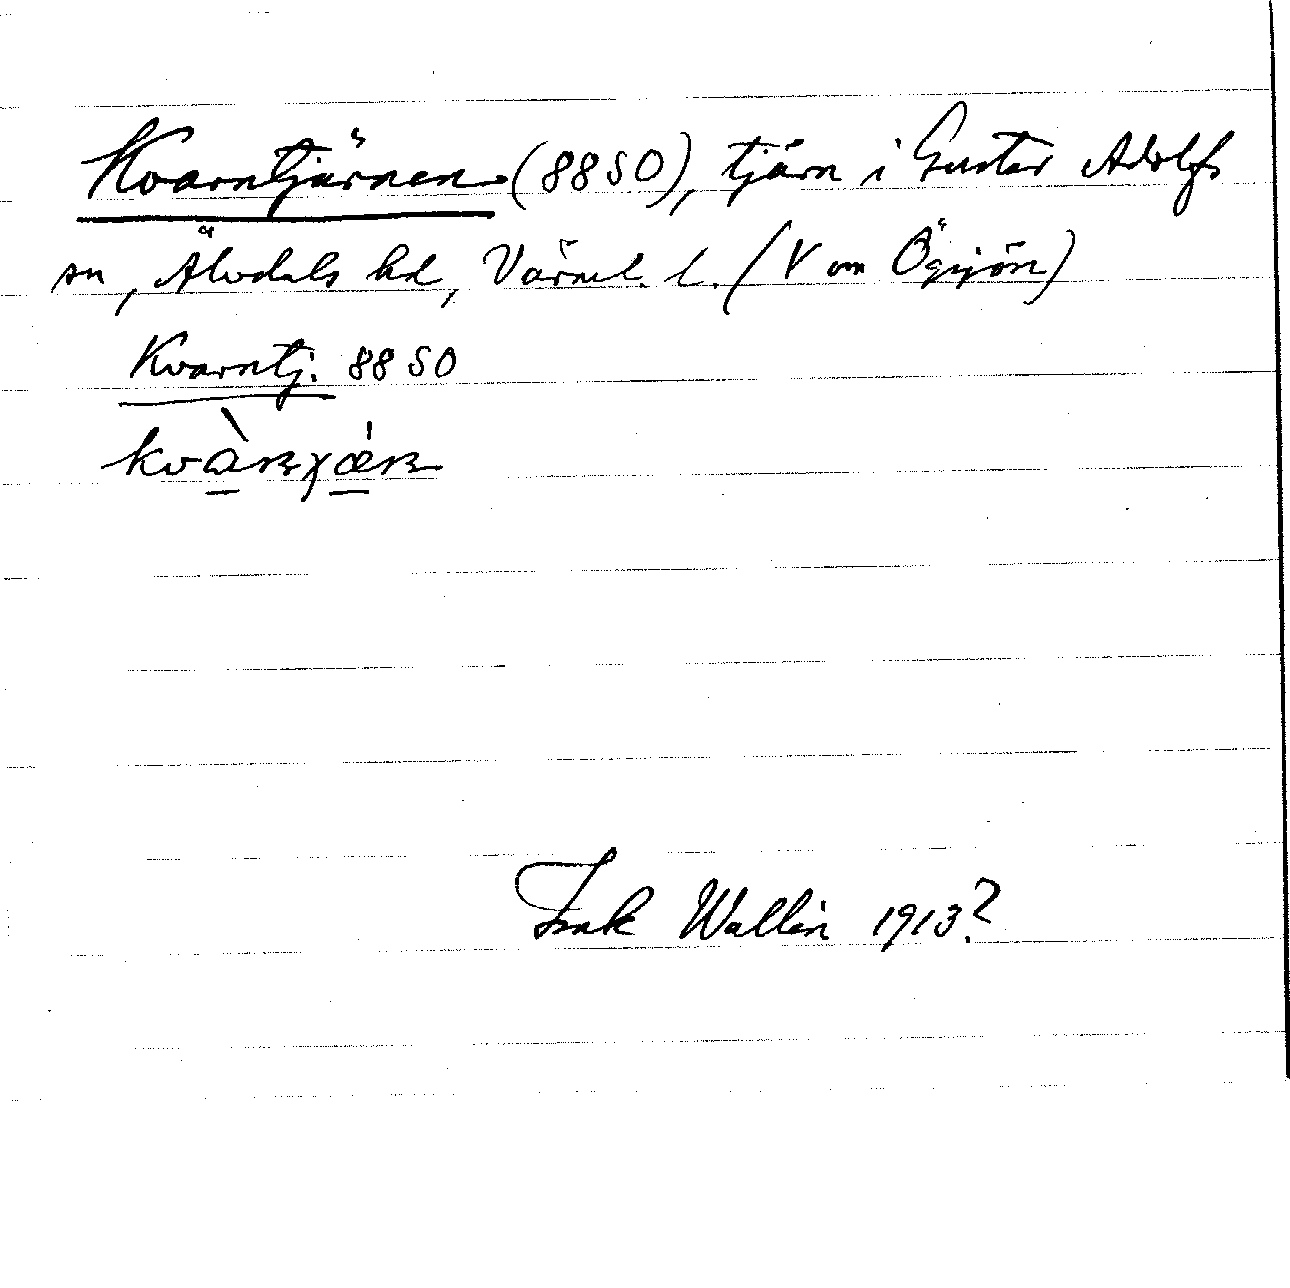 Kvarntjärnen (8850), tjärn i Gustav Adolfs
sn, Älvdals hd, Värml. l. (V om Ögsjön)
Kvarntj. 8850
Wallin 1913?